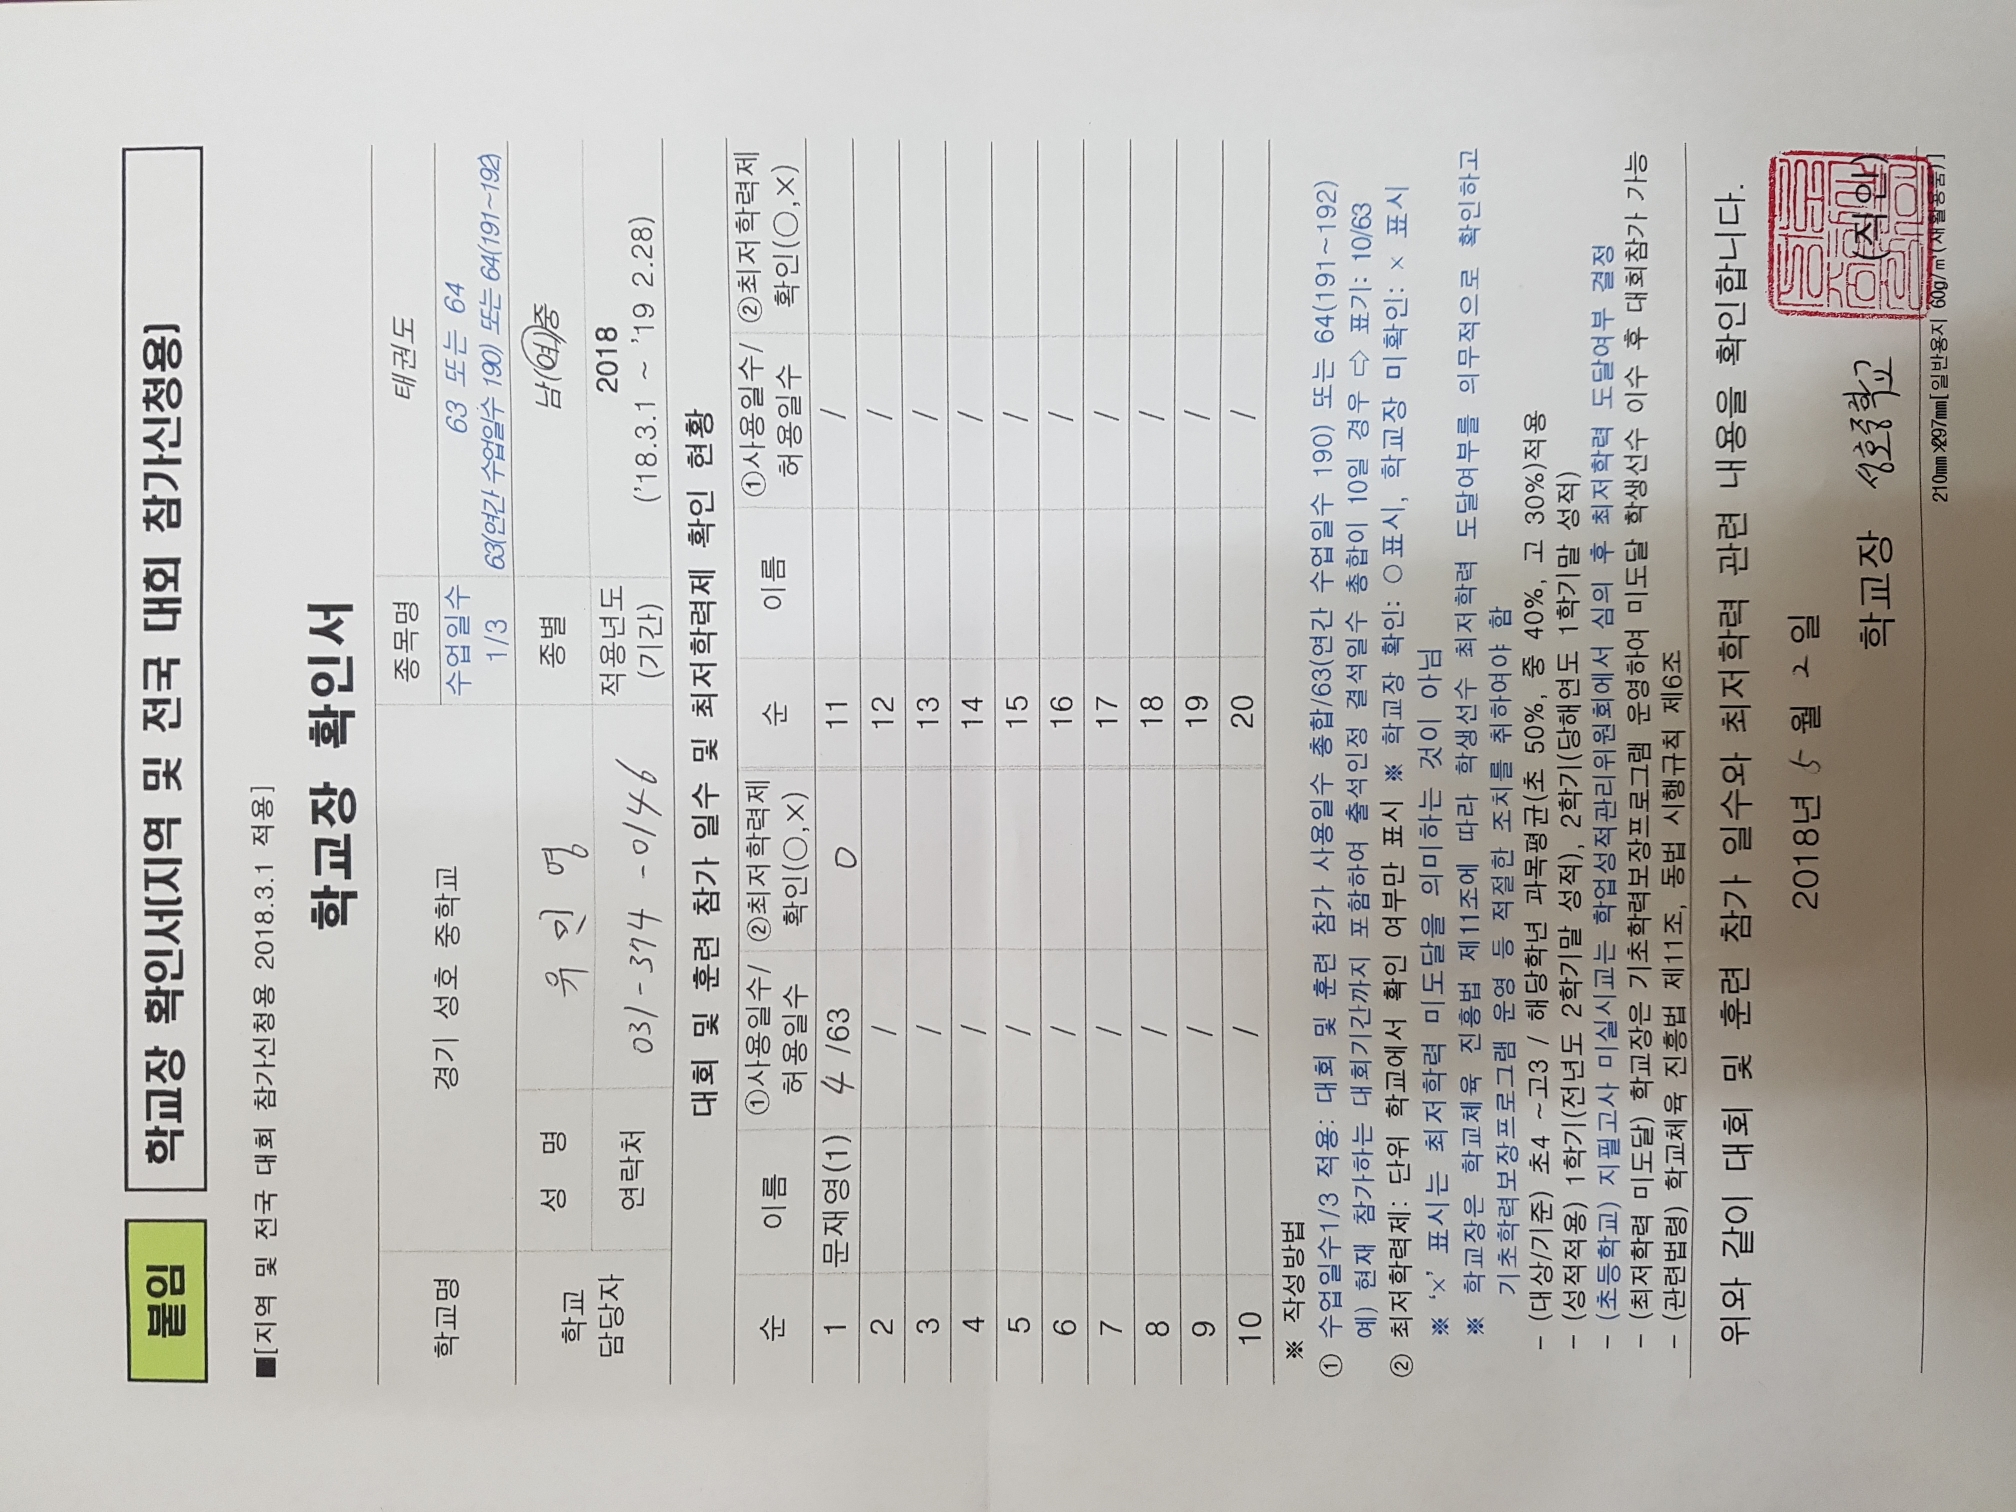 붙임 학교장 확인서(지역 및 전국 대회 참가신청용)
■[지역 및 전국 대회 참가신청용 2018.3.1 적용]
학교장 확인서
학교명 경기 성호 중학교 종목명 태권도
수업일수 1/3 63 또는 64
63(연간 수업일수 190) 또는 64(191~192)
학교 담당자 성 명 유 민 영 종별 남(여)중
연락처 031-374-0146 적용년도 (기간) 2018
('18.3.1 ~ '19 2.28)
대회 및 훈련 참가 일수 및 최저학력제 확인 현황
순 이름 ①사용일수/허용일수 ②최저학력제 확인(○,×) 순 이름 ①사용일수/허용일수 ②최저학력제 확인(○,×)
1 문재영(1) 4/63 O 11 /
2 / 12 /
3 / 13 /
4 / 14 /
5 / 15 /
6 / 16 /
7 / 17 /
8 / 18 /
9 / 19 /
10 / 20 /
※ 작성방법
① 수업일수1/3 적용: 대회 및 훈련 참가 사용일수 총합/63(연간 수업일수 190) 또는 64(191~192)
예) 현재 참가하는 대회기간까지 포함하여 출석인정 결석일수 총합이 10일 경우 ⇨ 표기: 10/63
② 최저학력제: 단위 학교에서 확인 여부만 표시 ※ 학교장 확인: ○표시, 학교장 미확인: × 표시
※ '×' 표시는 최저학력 미도달을 의미하는 것이 아님
※ 학교장은 학교체육 진흥법 제11조에 따라 학생선수 최저학력 도달여부를 의무적으로 확인하고
기초학력보장프로그램 운영 등 적절한 조치를 취하여야 함
- (대상/기준) 초4 ~고3 / 해당학년 과목평균(초 50%, 중 40%, 고 30%)적용
- (성적적용) 1학기(전년도 2학기말 성적), 2학기(당해연도 1학기말 성적)
- (초등학교) 지필고사 미실시교는 학업성적관리위원회에서 심의 후 최저학력 도달여부 결정
- (최저학력 미도달) 학교장은 기초학력보장프로그램 운영하여 미도달 학생선수 이수 후 대회참가 가능
- (관련법령) 학교체육 진흥법 제11조, 동법 시행규칙 제6조
위와 같이 대회 및 훈련 참가 일수와 최저학력 관련 내용을 확인합니다.
2018년 5 월 2 일
학교장 성호중학교 (직인)
210mm×297mm[일반용지 60g/㎡(재활용품)]